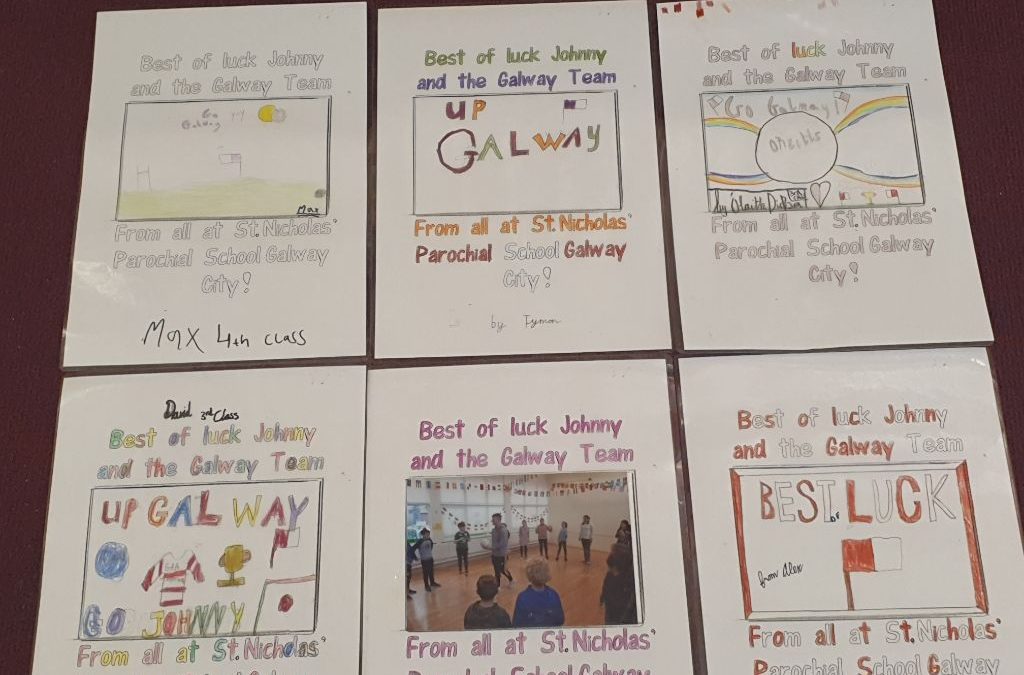 Best of luck Johnny
and the Galway Team
Go
Galway !!
Max
From all at St.Nicholas'
Parochial School Galway
City!
Max 4th class
Best of luck Johnny
and the Galway Team
UP
GALWAY
From all at St.Nicholas'
Parochial School Galway
City!
by Tymon
Best of luck Johnny
and the Galway Team
Go Galway!
by
From all at St.Nicholas'
Parochial School Galway
City!
David 3rd Class
Best of luck Johnny
and the Galway Team
UP GALWAY
GAA
GO JOHNNY
From all at St.Nicholas'
Best of luck Johnny
and the Galway Team
From all at St.Nicholas'
Parochial School Galway
Best of luck Johnny
and the Galway Team
BEST of LUCK
from Alex
From all at St.Nicholas'
Parochial School Galway